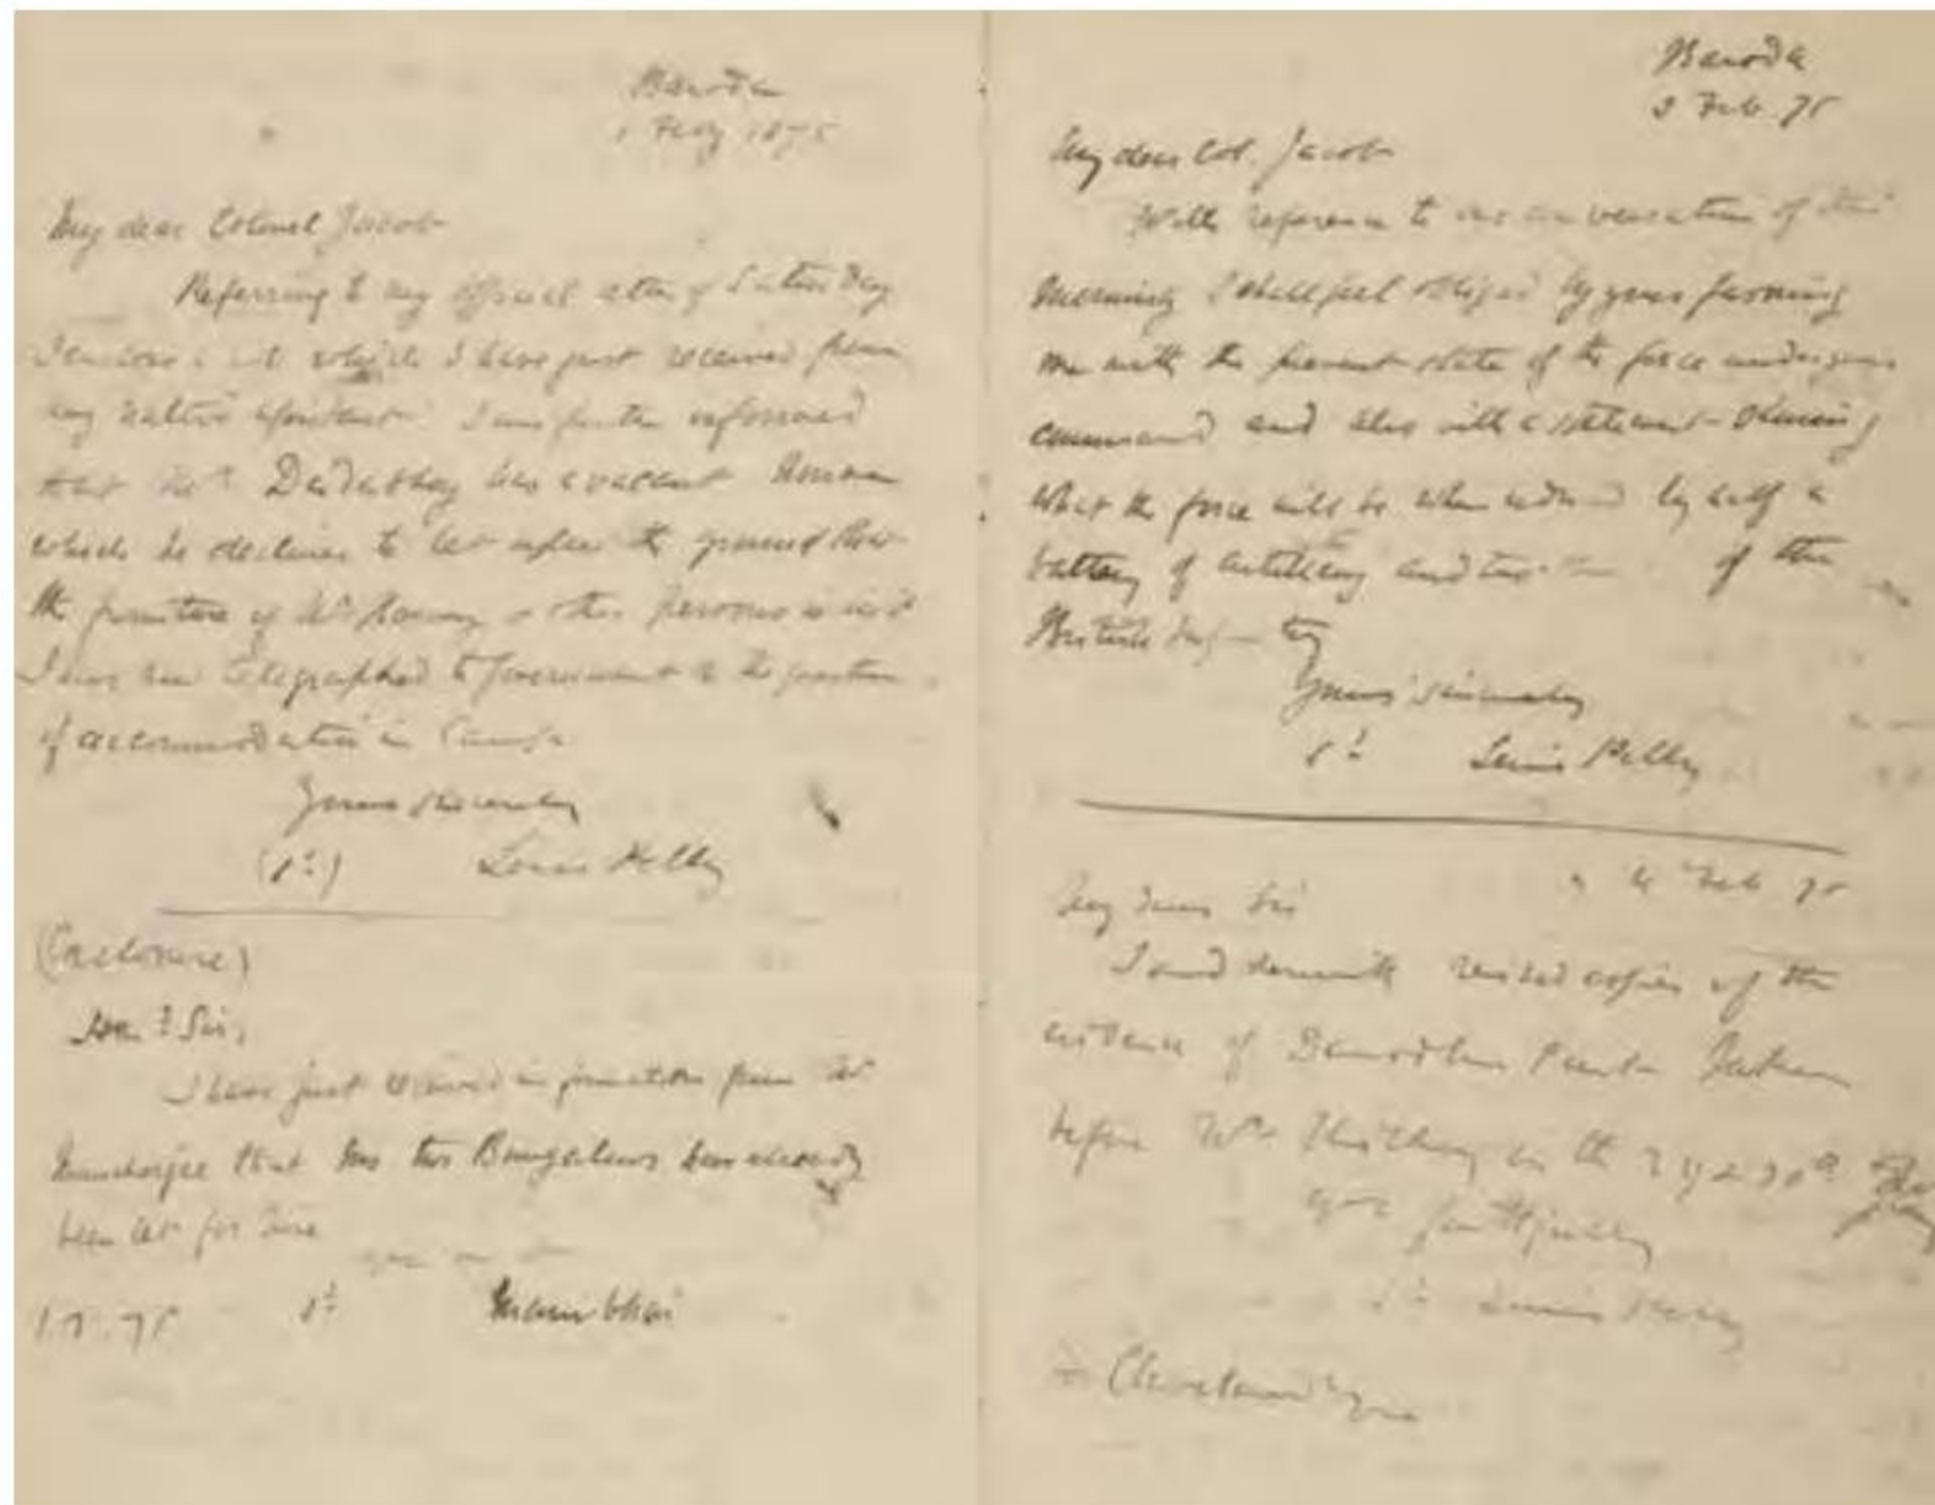 Baroda
1 Feby 1875
My dear Colonel Jacob
Referring to my official letter of Saturday
I enclose a note which I have just received from
my native assistant. I am further informed
that Mr Dadabhoy has a vacant House
which he declines to let unless the ground
the furniture of Mr & other persons
I have telegraphed to Government the question
of accommodation in Camp
Yours sincerely
(sd) Lewis Pelly
(Enclosure)
Hond Sir,
I have just received information from Mr
Muncherjee that his two Bungalows have already
been let for hire
sd Manibhai
1.2.75
Baroda
3 Feb 75
My dear Col. Jacob
With reference to our conversation of this
morning I shall feel obliged by your
me with the present state of the force under your
command and also with a statement shewing
what the force will be when reduced by half a
battery of artillery and two of the
British Infantry
Yours sincerely
sd Lewis Pelly
Feb 75
My dear Sir
I send herewith revised copies of the
evidence of Damodhur Punt taken
before Mr on the 29 & 30th
yrs faithfully
sd Lewis Pelly
Cleveland Esqre